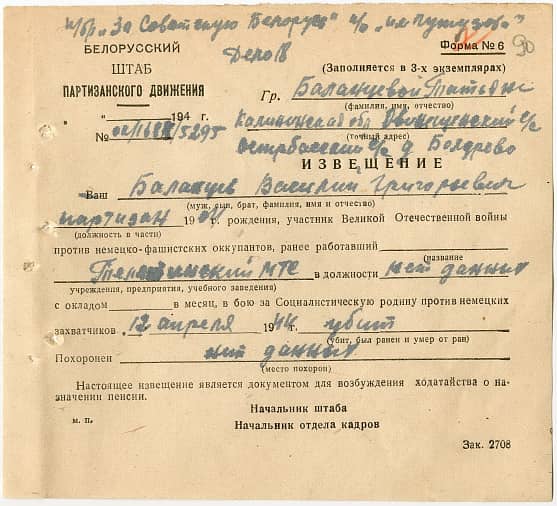 п/бр „За Советскую Белорусь" п/о
Дело
90
БЕЛОРУССКИЙ
ШТАБ
ПАРТИЗАНСКОГО ДВИЖЕНИЯ
„ “ 194 г.
№
Форма № 6
(Заполняется в 3-х экземплярах)
Гр. Баланцевой Татьяне
(фамилия, имя, отчество)
Калининская обл.
(точный адрес)
с/с д. Болдрево
ИЗВЕЩЕНИЕ
Ваш Баланцев Василий Григорьевич
(муж, сын, брат, фамилия, имя и отчество)
партизан 19 г. рождения, участник Великой Отечественной войны
(должность в части)
против немецко-фашистских оккупантов, ранее работавший
(название
МТС в должности нет данных
учреждения, предприятия, учебного заведения)
с окладом в месяц, в бою за Социалистическую родину против немецких
захватчиков 12 апреля 1944 г. убит
(убит, был ранен и умер от ран)
Похоронен нет данных
(место похорон)
Настоящее извещение является документом для возбуждения ходатайства о на-
значении пенсии.
Начальник штаба
м. п. Начальник отдела кадров
Зак. 2708